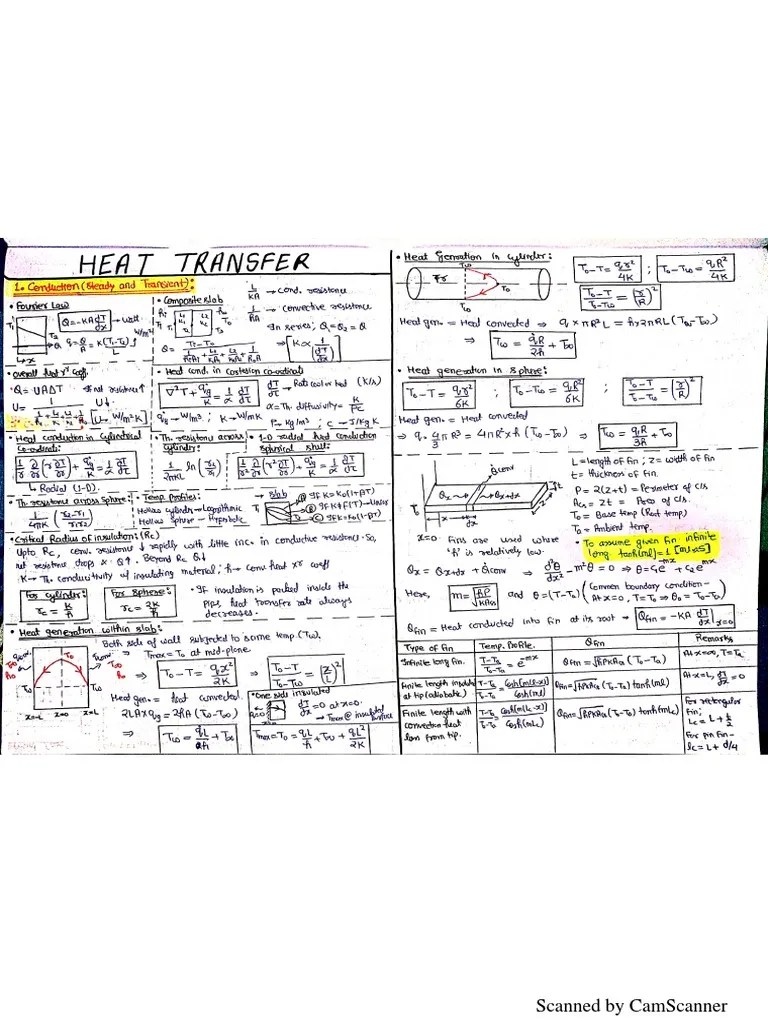 HEAT TRANSFER
1. Conduction (Steady and Transient):
• Fourier Law
Q = -KA dT/dx → Watt
q = Q/A = K(T₁-T₂)/L W/m²
T₁
T₂
L→x
• Composite slab
L/KA → Cond. resistance
1/hA → convective resistance
In series; Q₁=Q₂=Q
⇒ K ∝ 1/(dT/dx)
• Overall heat xʳ coeff.
• Q = UAΔT
U↓
U → W/m²K
• Heat cond. in Cartesian co-ordinate
∇²T + q̇g/K = 1/α dT/dτ
dT/dτ → Rate cool or hot (K/s)
α = Th. diffusivity = K/ρC
q̇g → W/m³ ; K → W/mK
ρ → Kg/m³ ; C → J/Kg K
• Heat conduction in Cylindrical
Co-ordinate:
1/r ∂/∂r (r∂T/∂r) + q̇g/K = 1/α ∂T/∂τ
↳ Radial (1-D)
• Th. resistance across
Cylinder:
1/2πKL ln(r₂/r₁)
• 1-D radial heat conduction
Spherical shell:
1/r² ∂/∂r (r²∂T/∂r) + q̇g/K = 1/α ∂T/∂τ
• Th. resistance across sphere:
1/4πK (r₂-r₁/r₁r₂)
• Temp. Profiles:
Hollow cylinder → Logarithmic
Hollow Sphere → Hyperbolic
→ slab
Ⓐ If K=K₀(1+βT)
Ⓑ If K≠f(T) → Linear
Ⓒ If K=K₀(1-βT)
• Critical Radius of insulation: (Rc)
Upto Rc, conv. resistance ↓ rapidly with little inc. in conductive resistance. So,
net resistance drops & Q↑. Beyond Rc Q↓
K → Th. conductivity of insulating material; h → conv. heat xʳ coeff
For cylinder:
rc = K/h
For Sphere:
rc = 2K/h
• If insulation is packed inside the
pipe, heat transfer rate always
decreases.
• Heat generation within slab:
Both side of wall subjected to same temp (Tw).
⇒ Tmax = T₀ at mid-plane.
⇒ T₀-T = q̇x²/2K ⇒ T₀-T/T₀-Tw = (x/L)²
Heat gen. = heat convected.
2LA×q̇g = 2hA(Tw-T∞)
⇒ Tw = q̇L/h + T∞
x=-L x=0 x=L
• One side insulated
dT/dx = 0 at x=0.
→ Tmax @ insulated surface
Tmax = T₀ = q̇L/h + T∞ + q̇L²/2K
• Heat Generation in Cylinder:
T₀-T = q̇r²/4K ; T₀-Tw = q̇R²/4K
T₀-T/T₀-Tw = (r/R)²
Heat gen. = Heat convected ⇒ q̇ × πR²L = h×2πRL(Tw-T∞)
⇒ Tw = q̇R/2h + T∞
• Heat generation in Sphere:
T₀-T = q̇r²/6K ; T₀-Tw = q̇R²/6K ; T₀-T/T₀-Tw = (r/R)²
Heat gen. = Heat convected
⇒ q̇ · 4/3 πR³ = 4πR²×h(Tw-T∞) ⇒ Tw = q̇R/3h + T∞
Qconv
Qx → → Qx+dx
x
dx
L = length of fin ; Z = width of fin
t = thickness of fin.
P = 2(Z+t) = Perimeter of C/s
Acs = Zt = Area of C/s.
T₀ = Base temp (Root temp.)
T∞ = Ambient temp.
x=0 Fins are used where
'h' is relatively low.
• To assume given fin infinite
long tanh(mL)=1 [mL≥5]
Qx = Qx+dx + Qconv ⇒ d²θ/dx² - m²θ = 0 ⇒ θ = C₁e⁻ᵐˣ + C₂eᵐˣ
Here, m = √hP/KAcs and θ = (T-T∞) (Common boundary condition- At x=0, T=T₀ ⇒ θ₀ = T₀-T∞)
Qfin = Heat conducted into fin at its root → Qfin = -KA dT/dx |x=0
Type of Fin Temp. Profile. Qfin Remarks
Infinite long fin. T-T∞/T₀-T∞ = e⁻ᵐˣ Qfin = √hPKAcs (T₀-T∞) At x=∞, T=T∞
Finite length insulated at tip (adiabatic) T-T∞/T₀-T∞ = Cosh(m(L-x))/Cosh(mL) Qfin = √hPKAcs (T₀-T∞) tanh(mL) At x=L, dT/dx = 0
Finite length with convection heat loss from tip. T-T∞/T₀-T∞ = Cosh(m(Lc-x))/Cosh(mLc) Qfin = √hPKAcs (T₀-T∞) tanh(mLc) For rectangular fin; Lc = L + t/2 For pin fin- Lc = L + d/4
Scanned by CamScanner